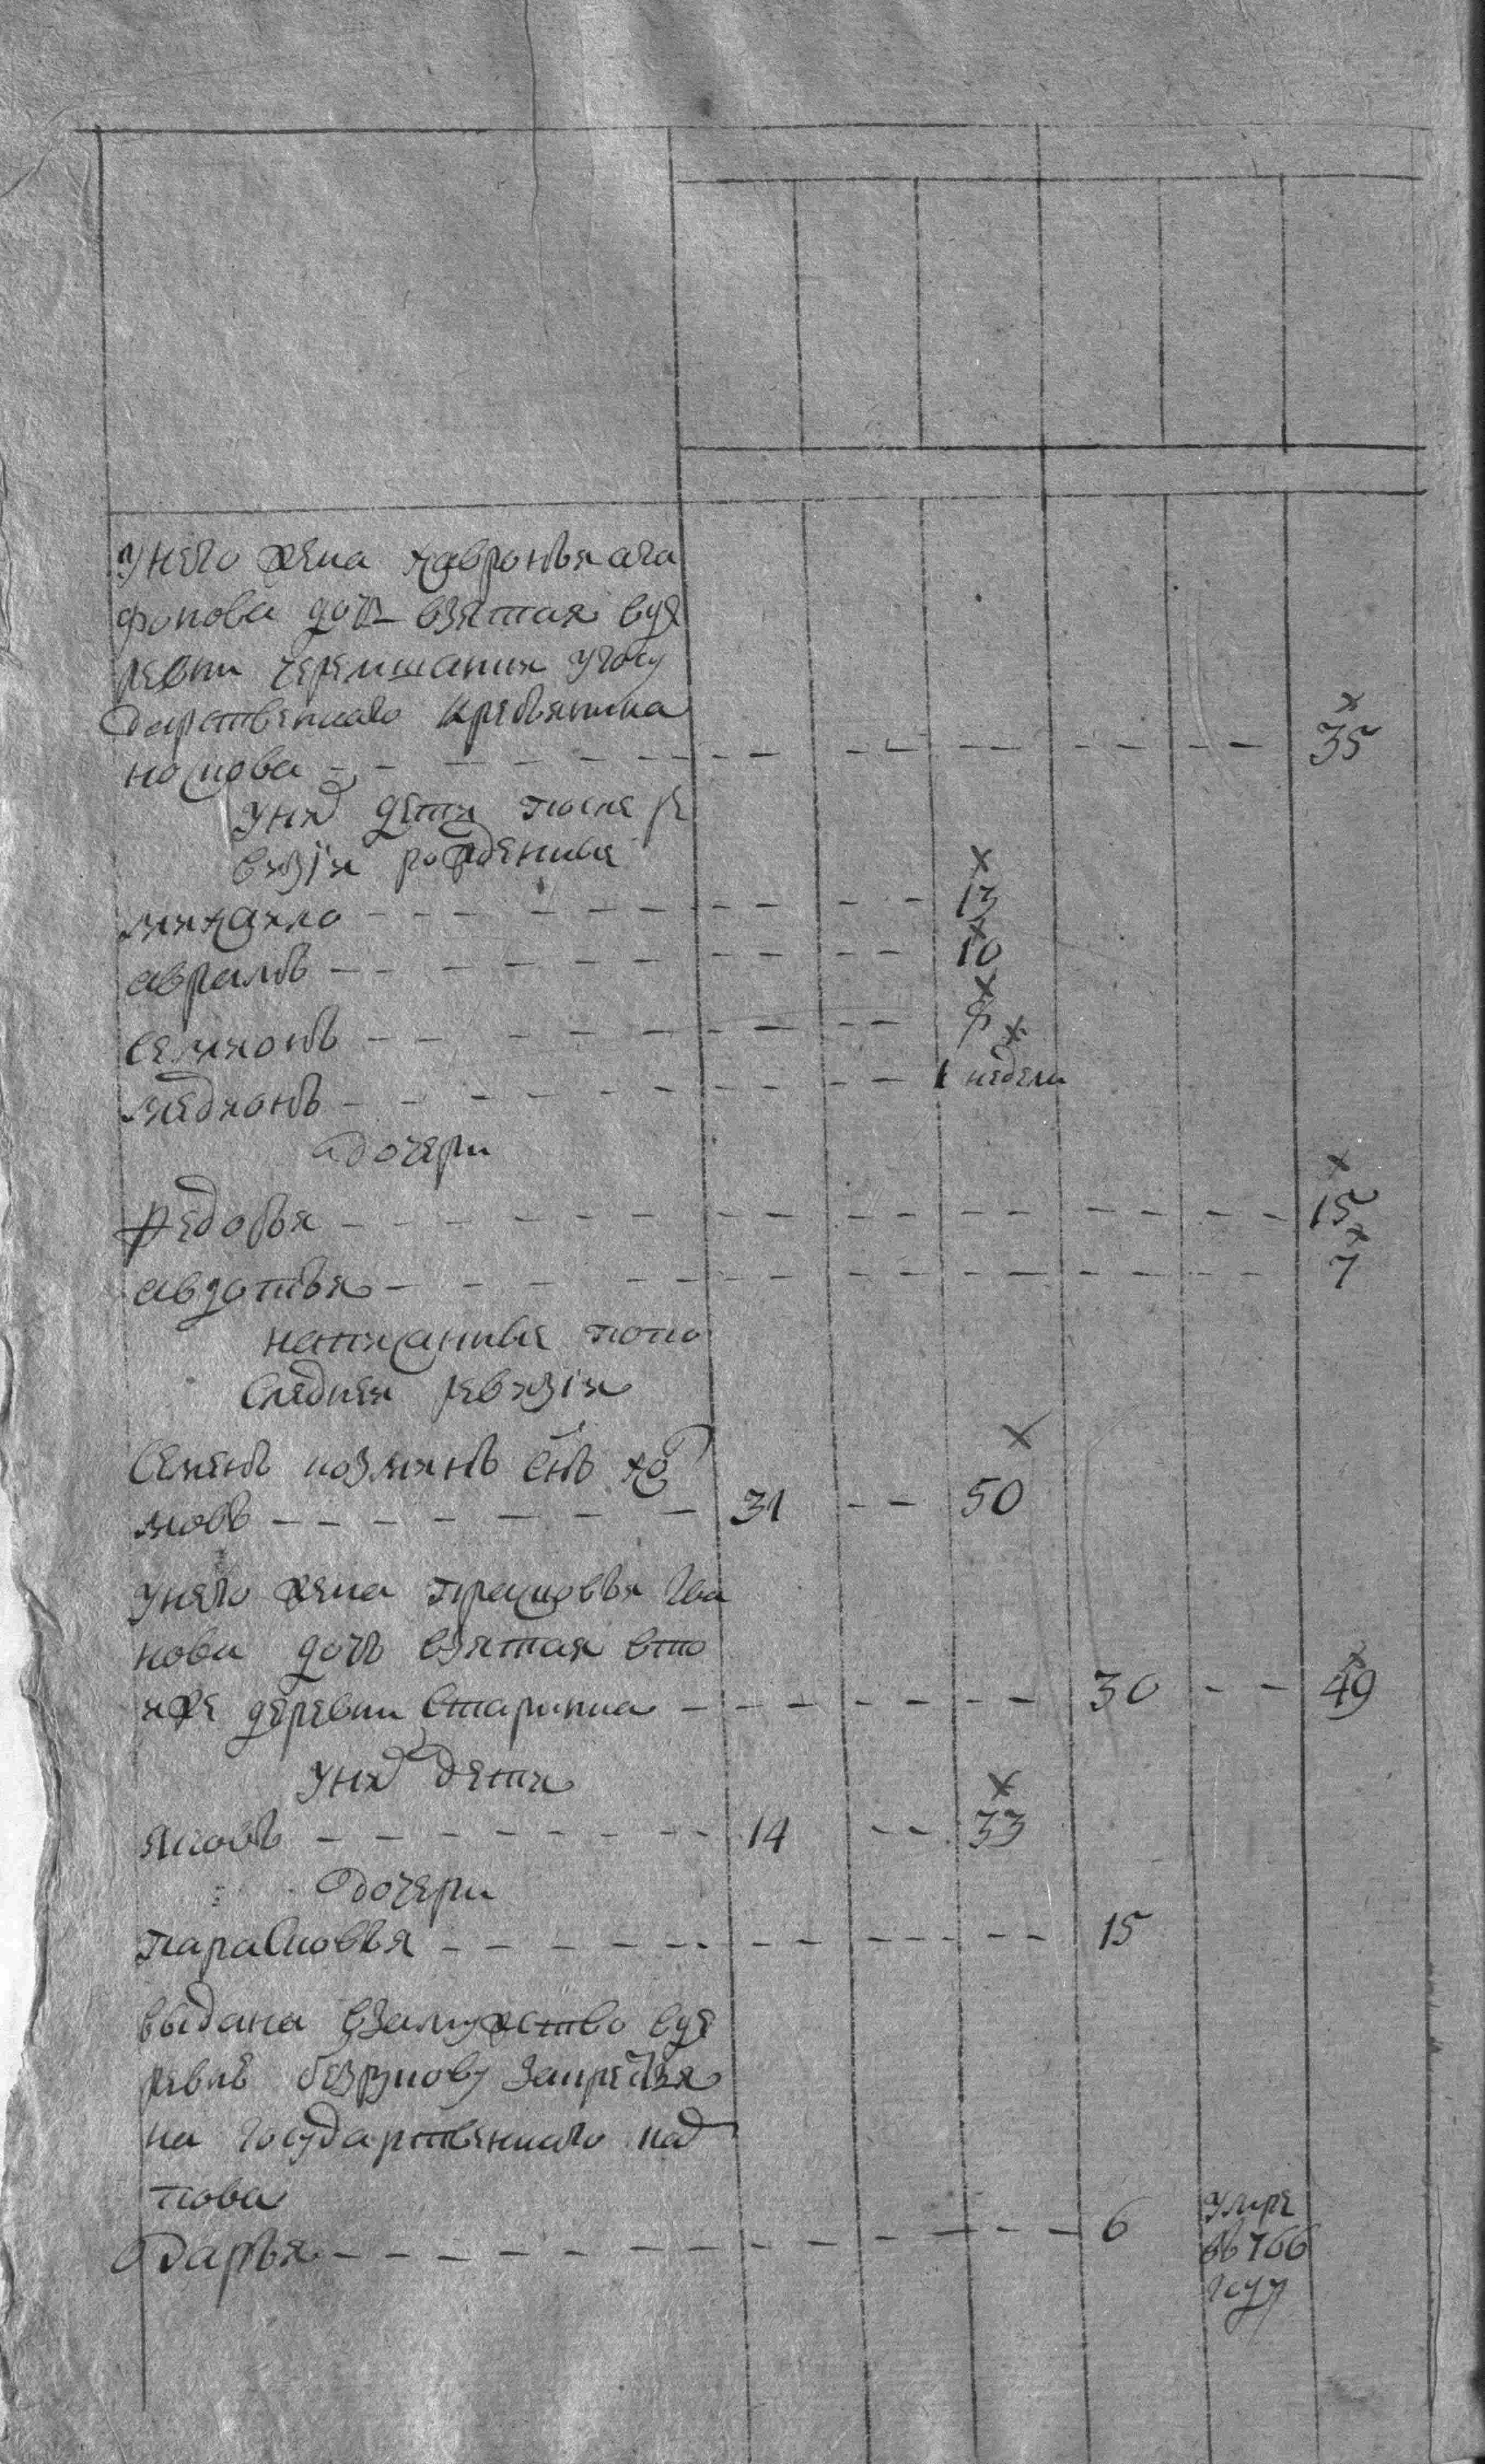 у него жена хавронья ага
фонова дочь взятая в де
ревни черемшания у госу
дарственнаго крестьянина
носкова - - - - - - - - - - - - - - - 35
у них дети после ре
визiи рожденныя
михайло - - - - - - - - - - 13
аврамъ - - - - - - - - - - 10
семионъ - - - - - - - - - -
медионъ - - - - - - - - - - 1 недели
дочери
федосья - - - - - - - - - - - - - - 15
авдотья - - - - - - - - - - - - - - 7
написанныя по по
следней ревизiи
Семенъ козминъ снъ
мовъ - - - - - - - 31 - - 50
у него жена прасковья ива
нова дочь взятая в то
й же деревни старинна - - - - - - 30 - - 49
у них дети
яковъ - - - - - - - 14 - - 33
дочери
парасковья - - - - - - - - - - 15
выдана в замужство в де
ревнѣ за крестья
на государственнаго
пова
дарья - - - - - - - - - - 6 умре
въ 766
году